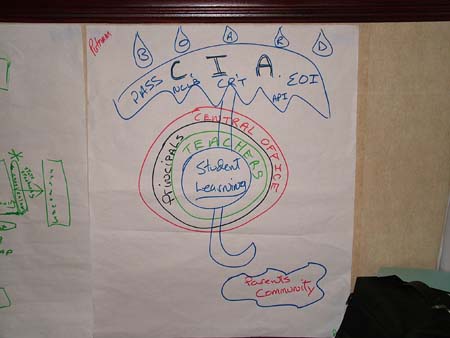 Putnam
B O A R D
C. I. A.
PASS NCLB CRT API EOI
CENTRAL OFFICE
PRINCIPALS
TEACHERS
Student
Learning
Parents
Community